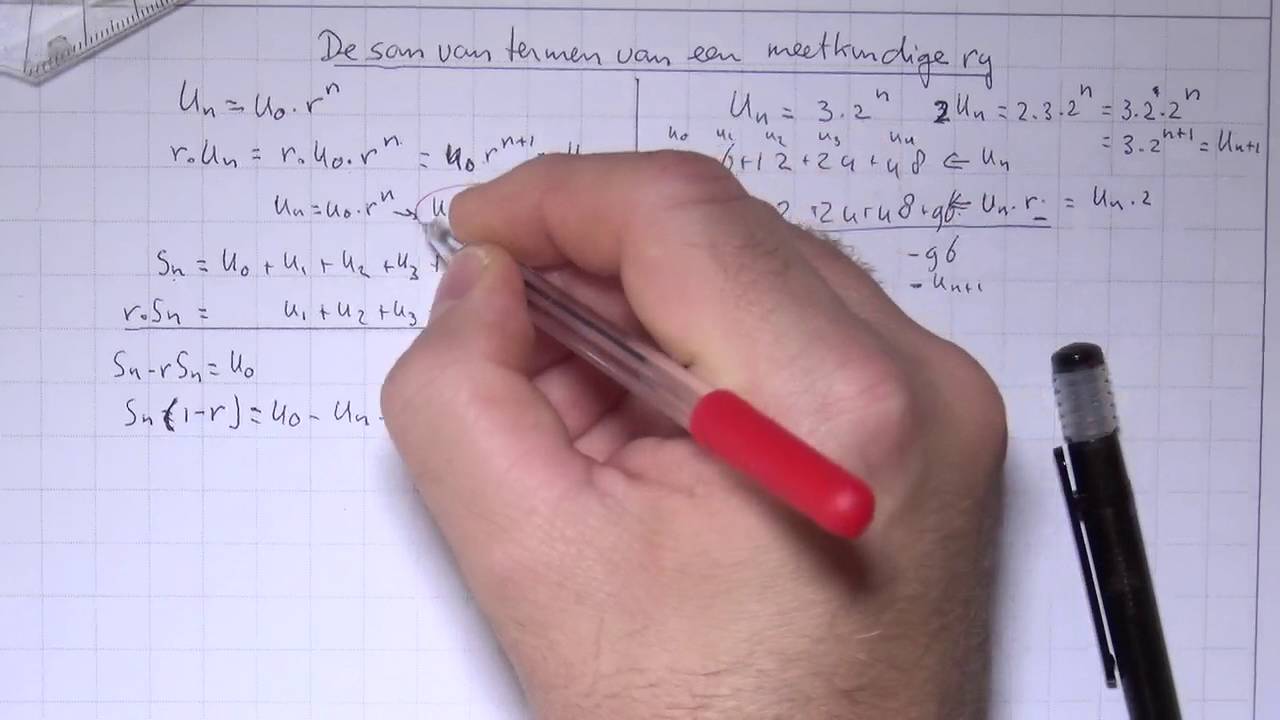 De som van termen van een meetkundige rij
Un = U0 · r^n
r·Un = r·U0·r^n = U0 r^n+1
Un = U0·r^n → U
Sn = U0 + U1 + U2 + U3 +
r·Sn = U1 + U2 + U3
Sn - rSn = U0
Sn(1-r) = U0 - Un
Un = 3·2^n 2Un = 2·3·2^n = 3·2·2^n
= 3·2^n+1 = Un+1
U0 U1 U2 U3 U4
6+12+24+48 ← Un
+24+48+96 ← Un·r = Un·2
-96
- Un+1